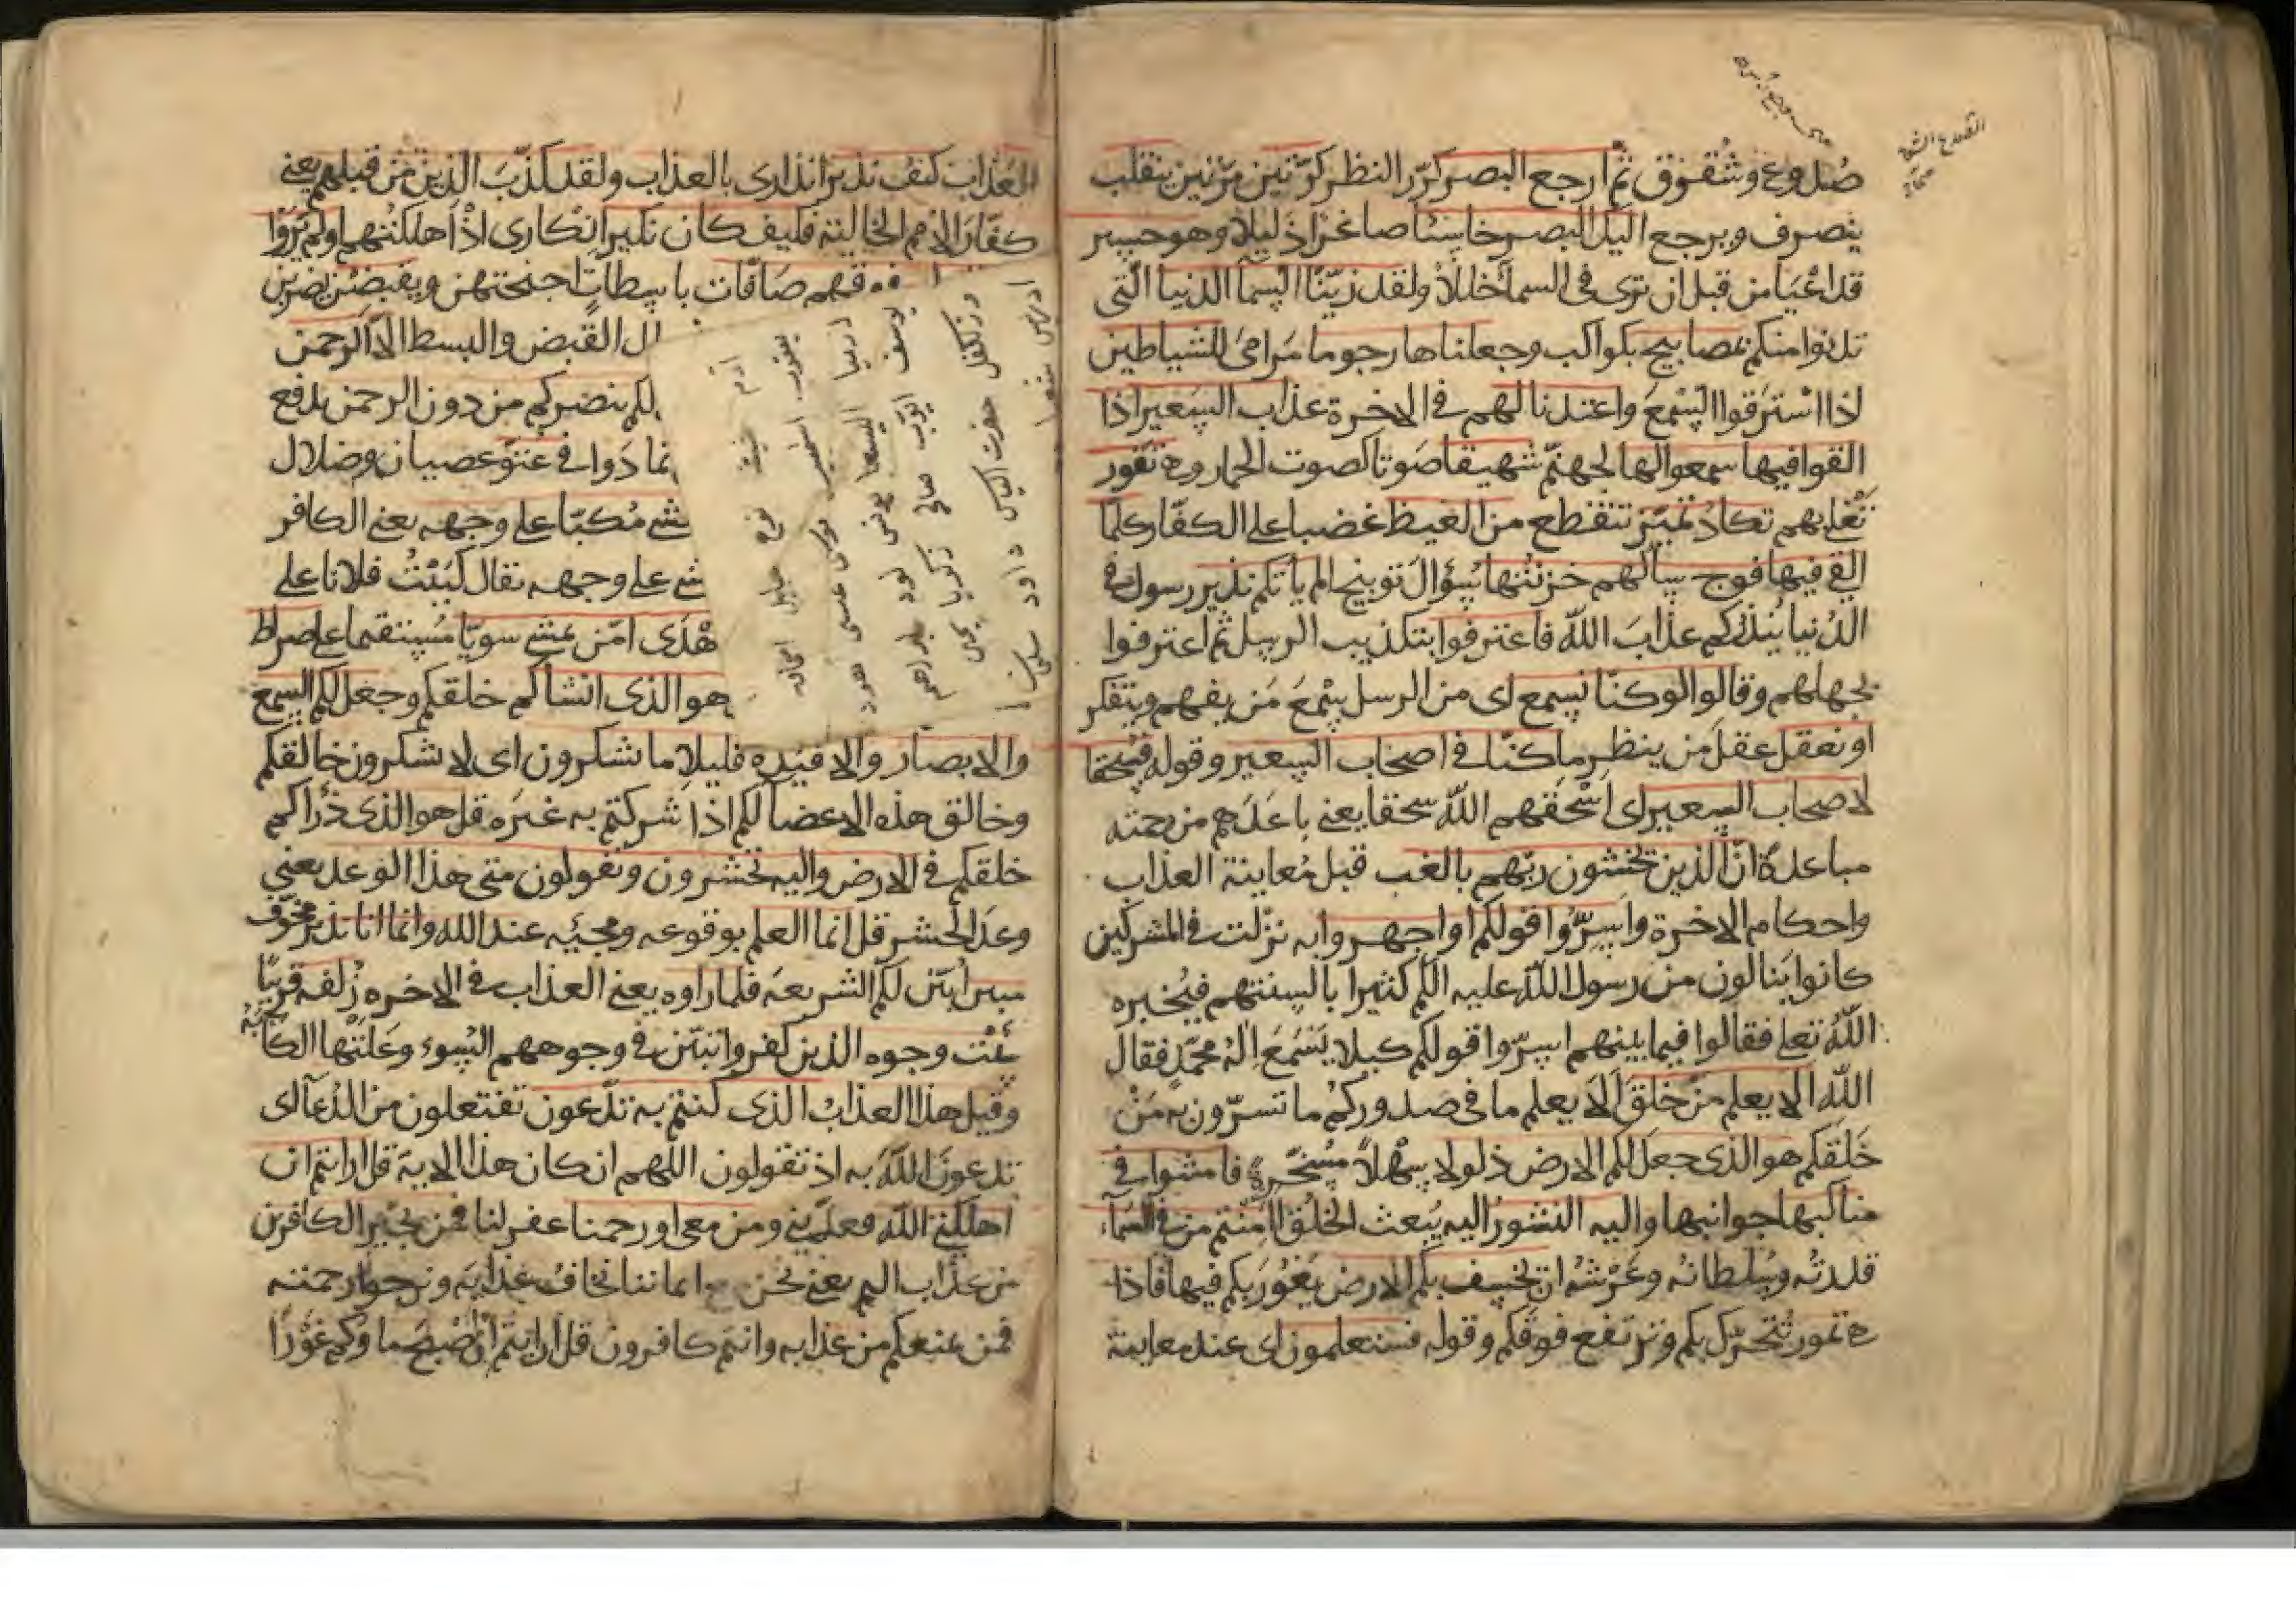 صُدوع وشُقوق ثم ارجع البصر كرّر النظر كرّتين مرّتين ينقلب
ينصرف ويرجع اليك البصر خاسئا صاغرا ذليلا وهو حسير
قد اعيا من قبل ان ترى في السمآ خللا ولقد زيّنّا السمآ الدنيا الّتى
تدنوا منكم بمصابيح بكواكب وجعلناها رجوما مَرامىَ للشياطين
اذا استرَقوا السّمعَ واعتدنا لهم في الاخرة عذاب السعير اذا
القوا فيها سمعوا لها لجهنّم شهيقا صَوتا كصوت الحمار وهى تفور
تَغْلى بهم تكادُ تميّز تتقطع من الغيظ غضبا على الكفّار كلما
القى فيها فوج سألهم خزنتُها سُؤالَ توبيخ الم يأتكم نذير رسول فى
الدُنيا يُنذركم عذابَ الله فاعترفوا بتكذيب الرسل ثم اعترفوا
بجهلهم وقالوا لو كنّا نسمع اى من الرسل سَمْعَ مَن يفهم ويتفكر
او نعقل عقلَ من ينظر ما كنّا فى اصحاب السعير وقوله فسُحقا
لاصحاب السعير اى اسْحَقهم الله سحقا يعنى باعَدَهم من رحمته
مباعدةً انّ الذين يخشون ربّهم بالغيب قبل مُعاينة العذاب
واحكام الاخرة واسِرُّوا قولكم او اجهروا به نزلت فى المشركين
كانوا ينالون من رسول الله عليه كثيرا بالسنتهم فيُخبره
اللهُ تعلى فقالوا فيما بينهم اسِرّوا قولكم كيلا يَسْمَعَ الهُ محمّدٍ فقال
الله الا يعلم من خلقَ اَلا يعلم ما فى صدوركم ما تسرّون به مَنْ
خَلَقكم هو الذى جعل لكم الارض ذلولا سهْلاً مُسَخّرة فامشوا فى
مناكبها جوانبها واليه النشورُ اليه يُبعث الخلقُ اأمنتم من فى السمآء
قدرتُه وسُلطانُه وعَرْشهُ ان يخسِف بكم الارض يَغُورَ بكم فيها فاذا
هى تمور تتحرّك بكم وترتفع فوقكم وقوله فستعلمون اى عند معاينة
العذاب كيف نذير انذارى بالعذاب ولقد كذّبَ الذين من قبلهم يعنى
كفّارَ الامم الخالية فكيف كان نكير انكارى اذْ اَهلكتُهم اولم يَرَوْا
فوقهم صَافّات باسِطاتٍ اجنحتهن ويقبضْن يضربن
القبض والبسط الاّ الرحمن
لكم ينصركم من دون الرحمن يدفع
فى عتوّ عصيان وضلال
مُكبّا على وجهه يعنى الكافر
على وجهه يقال كَبَبْتُ فلانا على
اهْدَى امّن يمشى سويّا مُستقيما على صراط
هو الذى انشأكم خلقكم وجعل لكم السمع
والابصار والافئدة قليلا ما تشكرون اى لا تشكرون خالقكم
وخالق هذه الاعضا لكم اذا شركتم به غيرَه قل هو الذى ذرأكم
خلقكم فى الارض واليه تحشرون ويقولون متى هذا الوعد يعنى
وعدَ الحشر قل انما العلم بوقوعه ومجيئه عند الله وانما انا نذير مخوّف
مبين اُبَيّن لكم الشريعه فلما راوه يعنى العذاب فى الاخره زُلفه قريبًا
سيئت وجوه الذين كفروا تبيّن فى وجوههم السوء وعَلَتْها الكآبة
وقيل هذا العذابُ الذى كنتم به تدّعون تفتعلون من الدُعآ اى
تدعونَ اللهَ به اذ تقولون اللهم ان كان هذا الاية قل ارايتم ان
اهلكنى الله فعذّبنى ومن معى او رحمنا غفر لنا فمن يُجير الكافرين
من عذاب اليم يعنى نحن مع ايماننا نخافُ عذابَه ونرجوا رحمته
فمن يمنعكم من عذابه وانتم كافرون قل ارايتم ان اصْبَحَ ماوكم غَوْرًا
آدم شيث نوح
يعقوب اسمعيل
ارميا موسى عيسى هود
يوسف ايوب صالح لود ابراهيم
وذلكفل حضرت الياس زكريا يحيى
ادريس شعيا داود سليمان